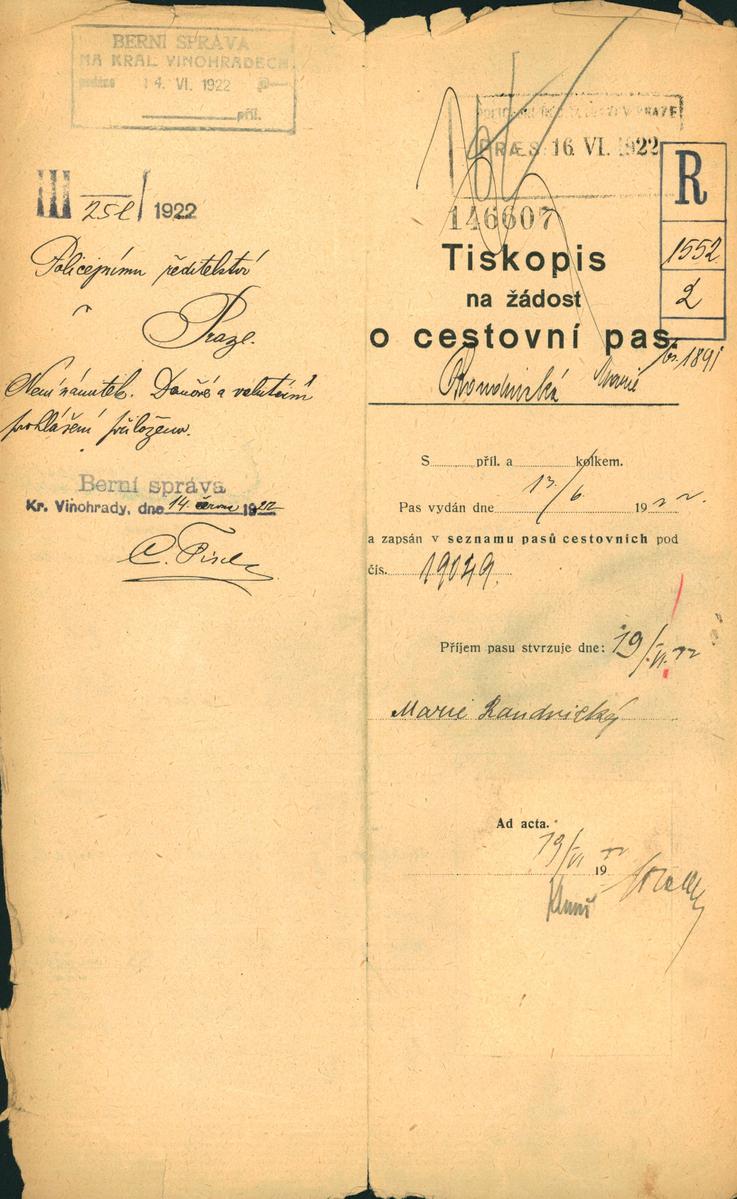 BERNÍ SPRÁVA
NA KRÁL. VINOHRADECH
podáno 14. VI. 1922
příl.
III 251/1922
Policejnímu ředitelství
v
Praze.
Není námitek. Daňové a valutární
prohlášení přiloženo.
Berní správa
Kr. Vinohrady, dne 14. června 1922
PRÆS: 16. VI. 1922
146607
R
1552
2
Tiskopis
na žádost
o cestovní pas.
Marie 1891
S příl. a kolkem.
Pas vydán dne 13/6 1922.
a zapsán v seznamu pasů cestovních pod
čís. 19049.
Příjem pasu stvrzuje dne: 19/VI. 22
Marie
Ad acta.
19/VI 1922